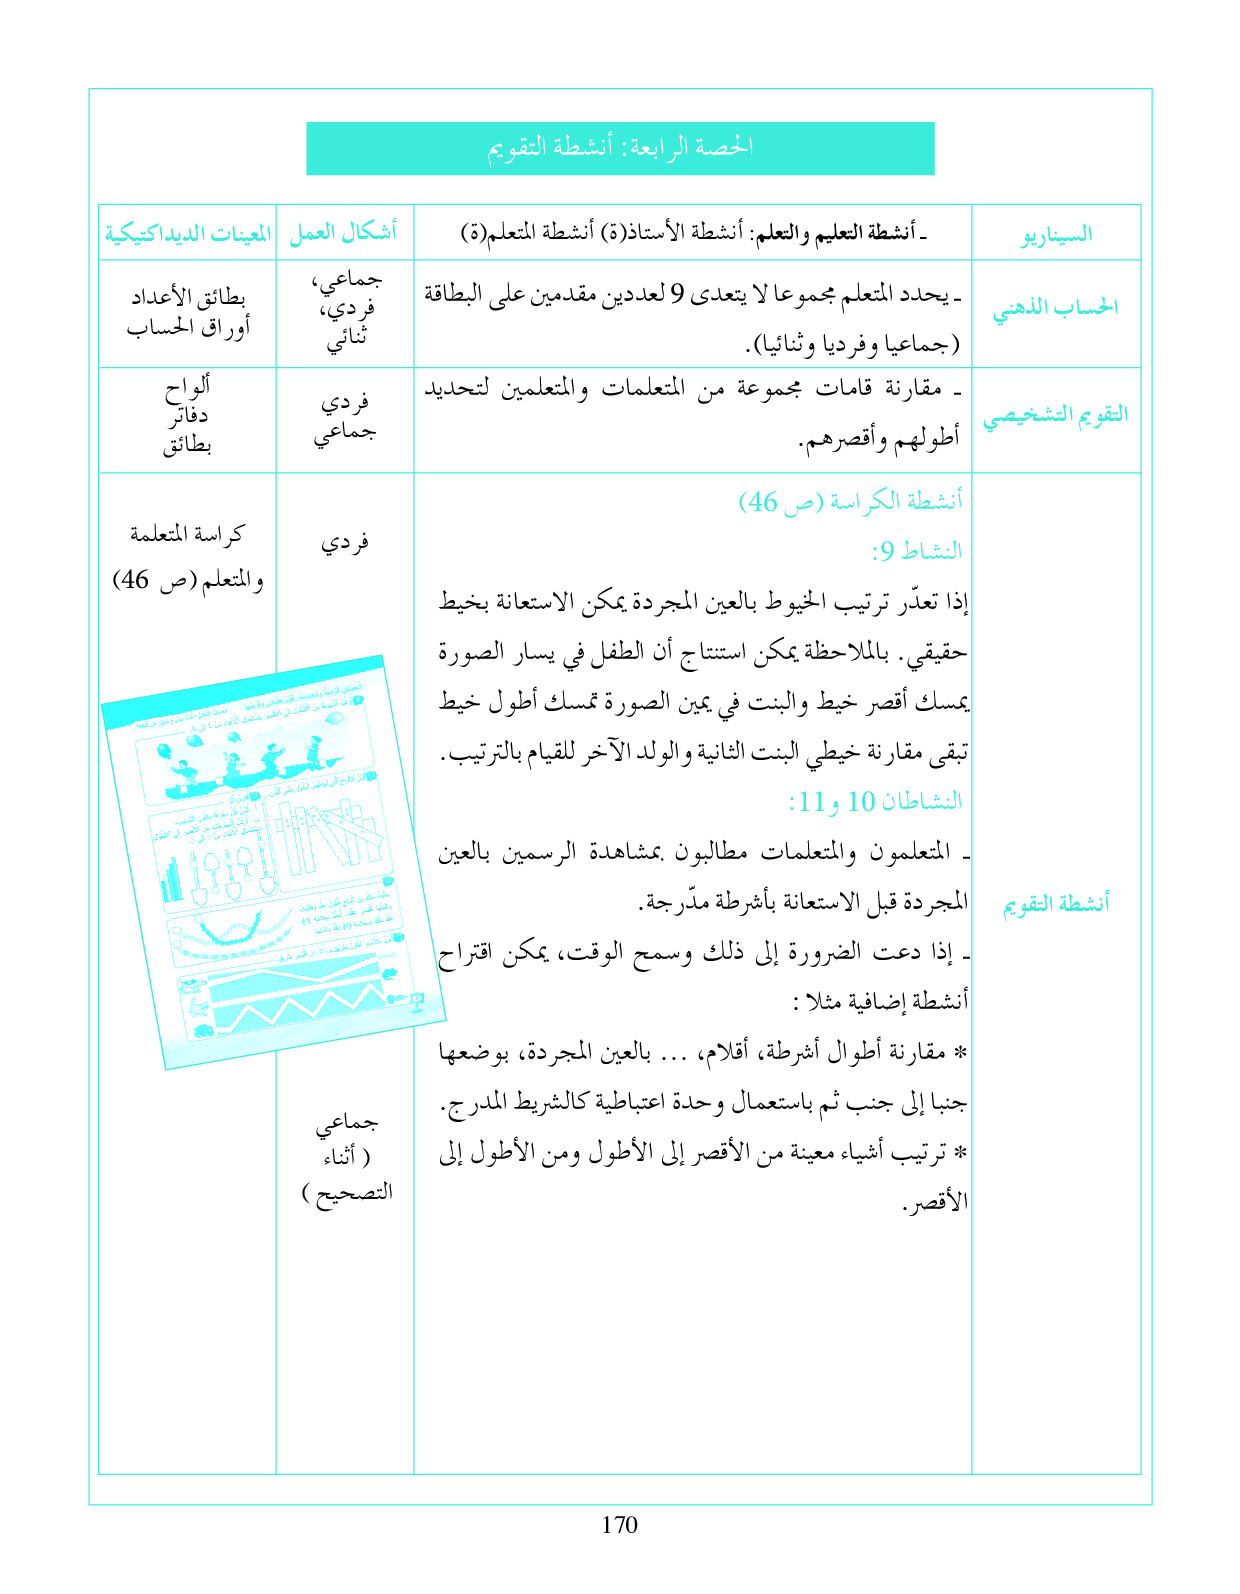 الحصة الرابعة: أنشطة التقويم
السيناريو
ـ أنشطة التعليم والتعلم: أنشطة الأستاذ(ة) أنشطة المتعلم(ة)
أشكال العمل
المعينات الديداكتيكية
الحساب الذهني
ـ يحدد المتعلم مجموعا لا يتعدى 9 لعددين مقدمين على البطاقة
(جماعيا وفرديا وثنائيا).
جماعي،
فردي،
ثنائي
بطائق الأعداد
أوراق الحساب
التقويم التشخيصي
ـ مقارنة قامات مجموعة من المتعلمات والمتعلمين لتحديد
أطولهم وأقصرهم.
فردي
جماعي
ألواح
دفاتر
بطائق
أنشطة التقويم
أنشطة الكراسة (ص 46)
النشاط 9:
إذا تعدّر ترتيب الخيوط بالعين المجردة يمكن الاستعانة بخيط
حقيقي. بالملاحظة يمكن استنتاج أن الطفل في يسار الصورة
يمسك أقصر خيط والبنت في يمين الصورة تمسك أطول خيط
تبقى مقارنة خيطي البنت الثانية والولد الآخر للقيام بالترتيب.
النشاطان 10 و11:
ـ المتعلمون والمتعلمات مطالبون بمشاهدة الرسمين بالعين
المجردة قبل الاستعانة بأشرطة مدّرجة.
ـ إذا دعت الضرورة إلى ذلك وسمح الوقت، يمكن اقتراح
أنشطة إضافية مثلا :
* مقارنة أطوال أشرطة، أقلام، ... بالعين المجردة، بوضعها
جنبا إلى جنب ثم باستعمال وحدة اعتباطية كالشريط المدرج.
* ترتيب أشياء معينة من الأقصر إلى الأطول ومن الأطول إلى
الأقصر.
فردي
جماعي
( أثناء
التصحيح )
كراسة المتعلمة
والمتعلم (ص 46)
170